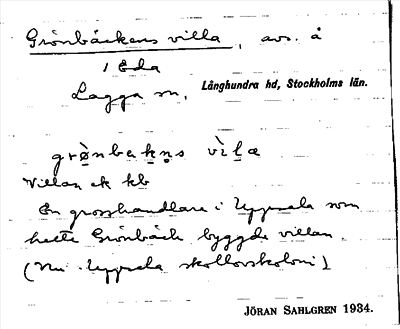 Grönbäckens villa, avs. å
i Eda
Lagga sn, Långhundra hd, Stockholms län.
grö̀nbekn̥s vìla
Villan ek kb
En grosshandlare i Uppsala som
hette Grönbäck byggde villan.
(Nu Uppsala skollovskoloni)
JÖRAN SAHLGREN 1934.